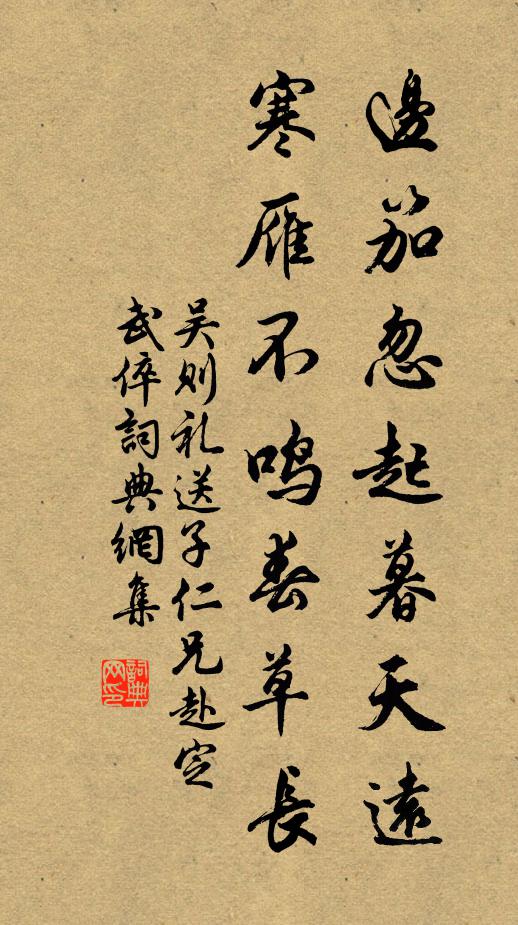 邊笳忽起暮天遠
寒雁不鳴春草長
吴则礼送子仁兄赴定
武倅詞典網集
詞典
网印